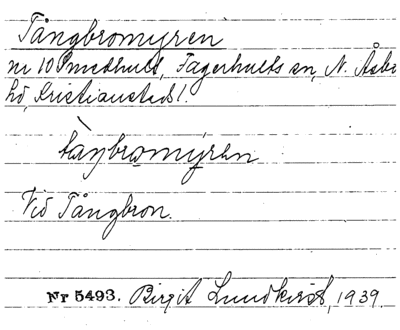 Tångbromyren
nr 10 Smedhult, Fagerhults sn, N. Åsbo
hd, Kristianstads l.
tàŋbromýren
Vid Tångbron.
Nr 5493. Birgit Lundkvist, 1939.